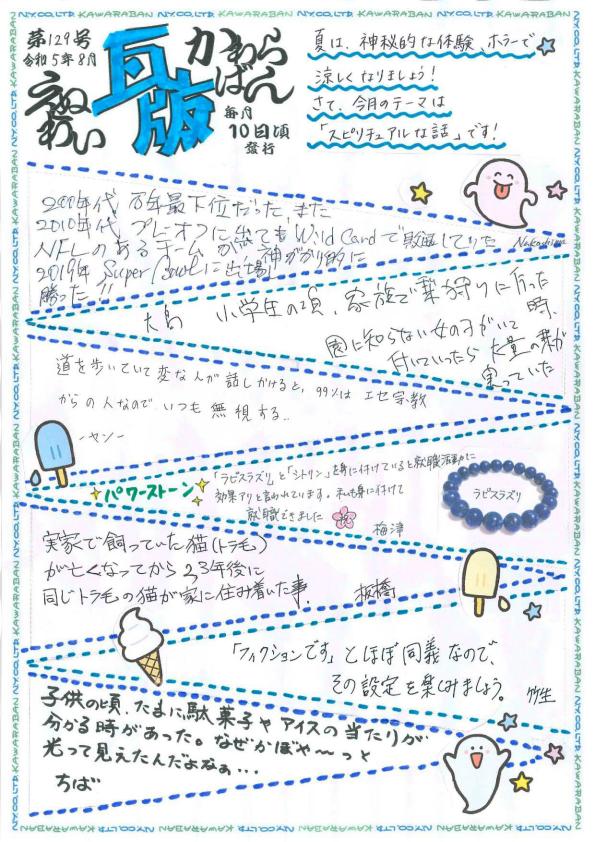 第129号
令和5年8月
えぬわい
瓦版
かわらばん
毎月
10日頃
発行
夏は、神秘的な体験、ホラーで
涼しくなりましょう!
さて、今月のテーマは
「スピリチュアルな話」です!
2000年代 万年最下位だった、また
2010年代 プレーオフに出ても Wild Cardで敗退していた Nakashima
NFLのあるチームが 神がかり的に
2019年 Super Bowlに出場し
勝った!!
大島 小学生の頃、家族で栗狩りに行った時、
園に知らない女の子がいて
付いていったら大量の栗が
実っていた
道を歩いていて変な人が話しかけると、99%は エセ宗教
からの人なので いつも無視する..
ーヤンー
パワーストーン
「ラピスラズリ」と「シトリン」を身に付けていると就職活動に
効果アリと言われています。私も身に付けて
就職できました 祝
梅津
ラピスラズリ
実家で飼っていた猫(トラ毛)
が亡くなってから 2,3年後に
同じトラ毛の猫が家に住み着いた事。 板橋
「フィクションです」とほぼ同義なので、
その設定を楽しみましょう。 竹生
子供の頃、たまに駄菓子やアイスの当たりが
分かる時があった。なぜかぼや〜っと
光って見えたんだよなぁ…
ちば
N.Y.CO.,LTD. KAWARABAN